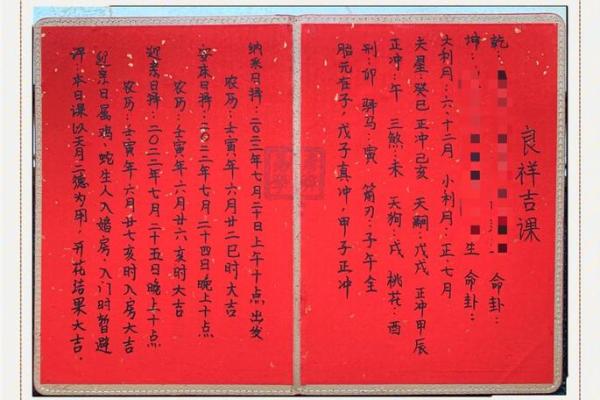 良祥吉课
乾： 命卦：
坤： 生 命卦：
大利月：六、十二月 小利月：正、七月
夫星：癸巳 正冲己亥 天嗣：戊戌 正冲甲辰
正冲：午 三煞：未 天狗：戌 桃花：酉
刑：卯 驿马：寅 箭刃：子午全
胎元在子，戊子真冲，甲子正冲
纳采日择：二0二二年七月二十日上午十点出发
农历：壬寅年六月廿二巳时大吉
安床日择：二0二二年七月二十四日晚上十点
农历：壬寅年六月廿六亥时大吉
迎亲日择：二0二二年七月二十五日晚上十点
农历：壬寅年六月廿七亥时入房大吉
迎亲日属鸡、蛇生人入婚房、入门时暂避
评：本日课以天月二德为用！开花结果大吉．